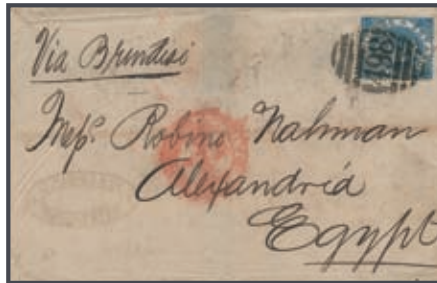 Via Brindisi
498
Messrs. Robino Nahman
Alexandria
Egypt